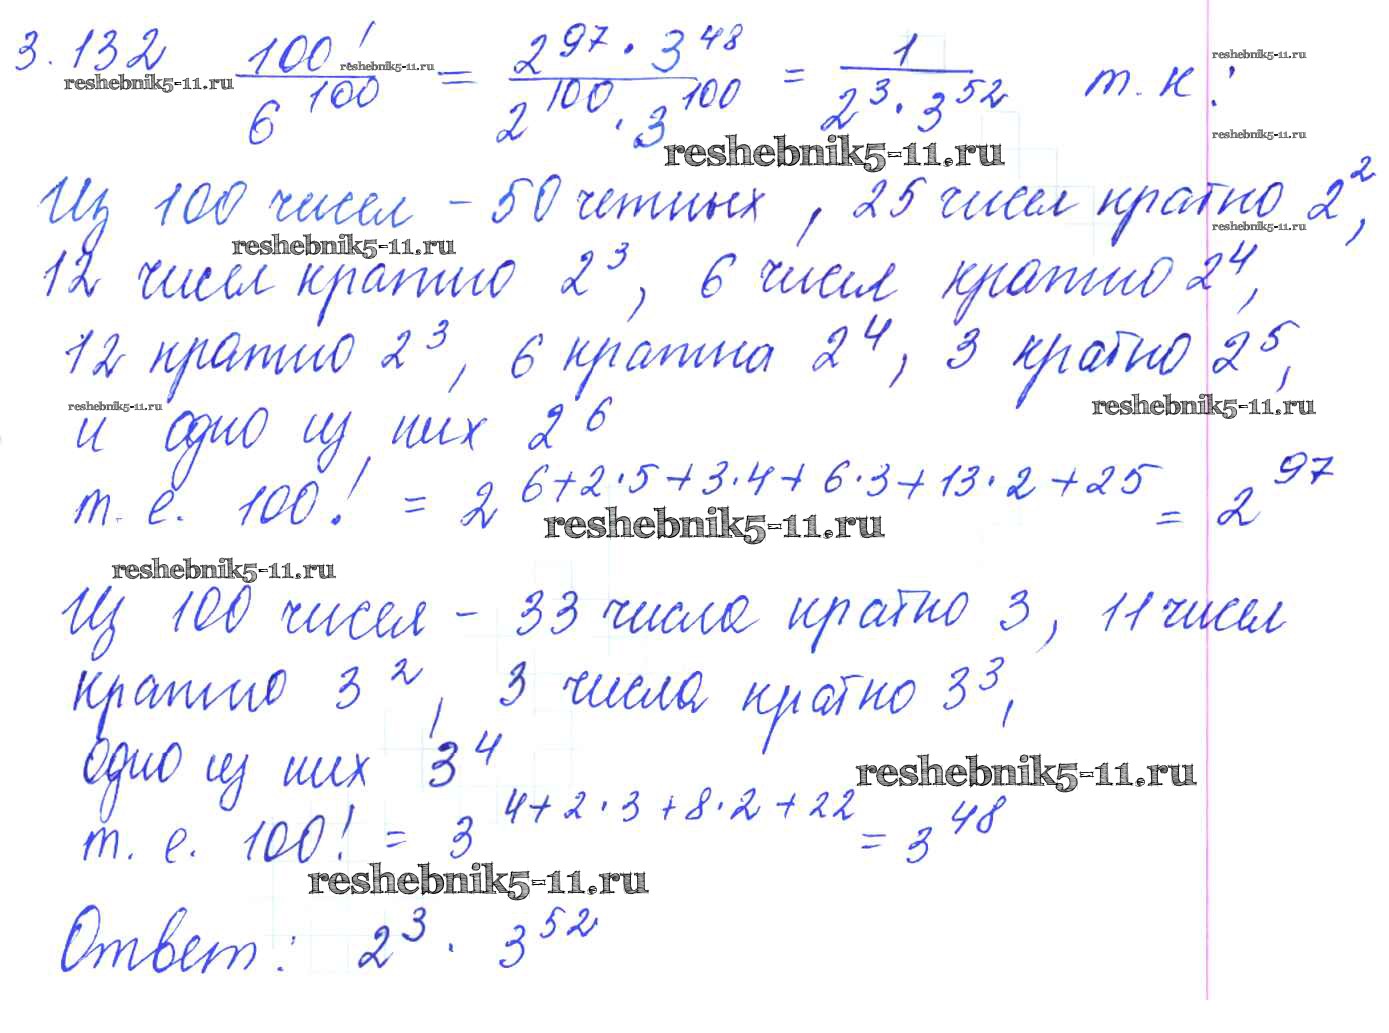 3.132 100!/6^100 = 2^97 · 3^48/2^100 · 3^100 = 1/2^3 · 3^52 т.к:
reshebnik5-11.ru reshebnik5-11.ru reshebnik5-11.ru
reshebnik5-11.ru reshebnik5-11.ru
Из 100 чисел – 50 четных, 25 чисел кратно 2^2,
reshebnik5-11.ru reshebnik5-11.ru
12 чисел кратно 2^3, 6 чисел кратно 2^4,
12 кратно 2^3, 6 кратна 2^4, 3 кратно 2^5,
reshebnik5-11.ru reshebnik5-11.ru
и одно из них 2^6
т.е. 100! = 2^6+2·5+3·4+6·3+13·2+25 = 2^97
reshebnik5-11.ru
reshebnik5-11.ru
Из 100 чисел – 33 числа кратно 3, 11 чисел
кратно 3^2, 3 числа кратно 3^3,
одно из них 3^4
reshebnik5-11.ru
т.е. 100! = 3^4+2·3+8·2+22 = 3^48
reshebnik5-11.ru
Ответ: 2^3 · 3^52